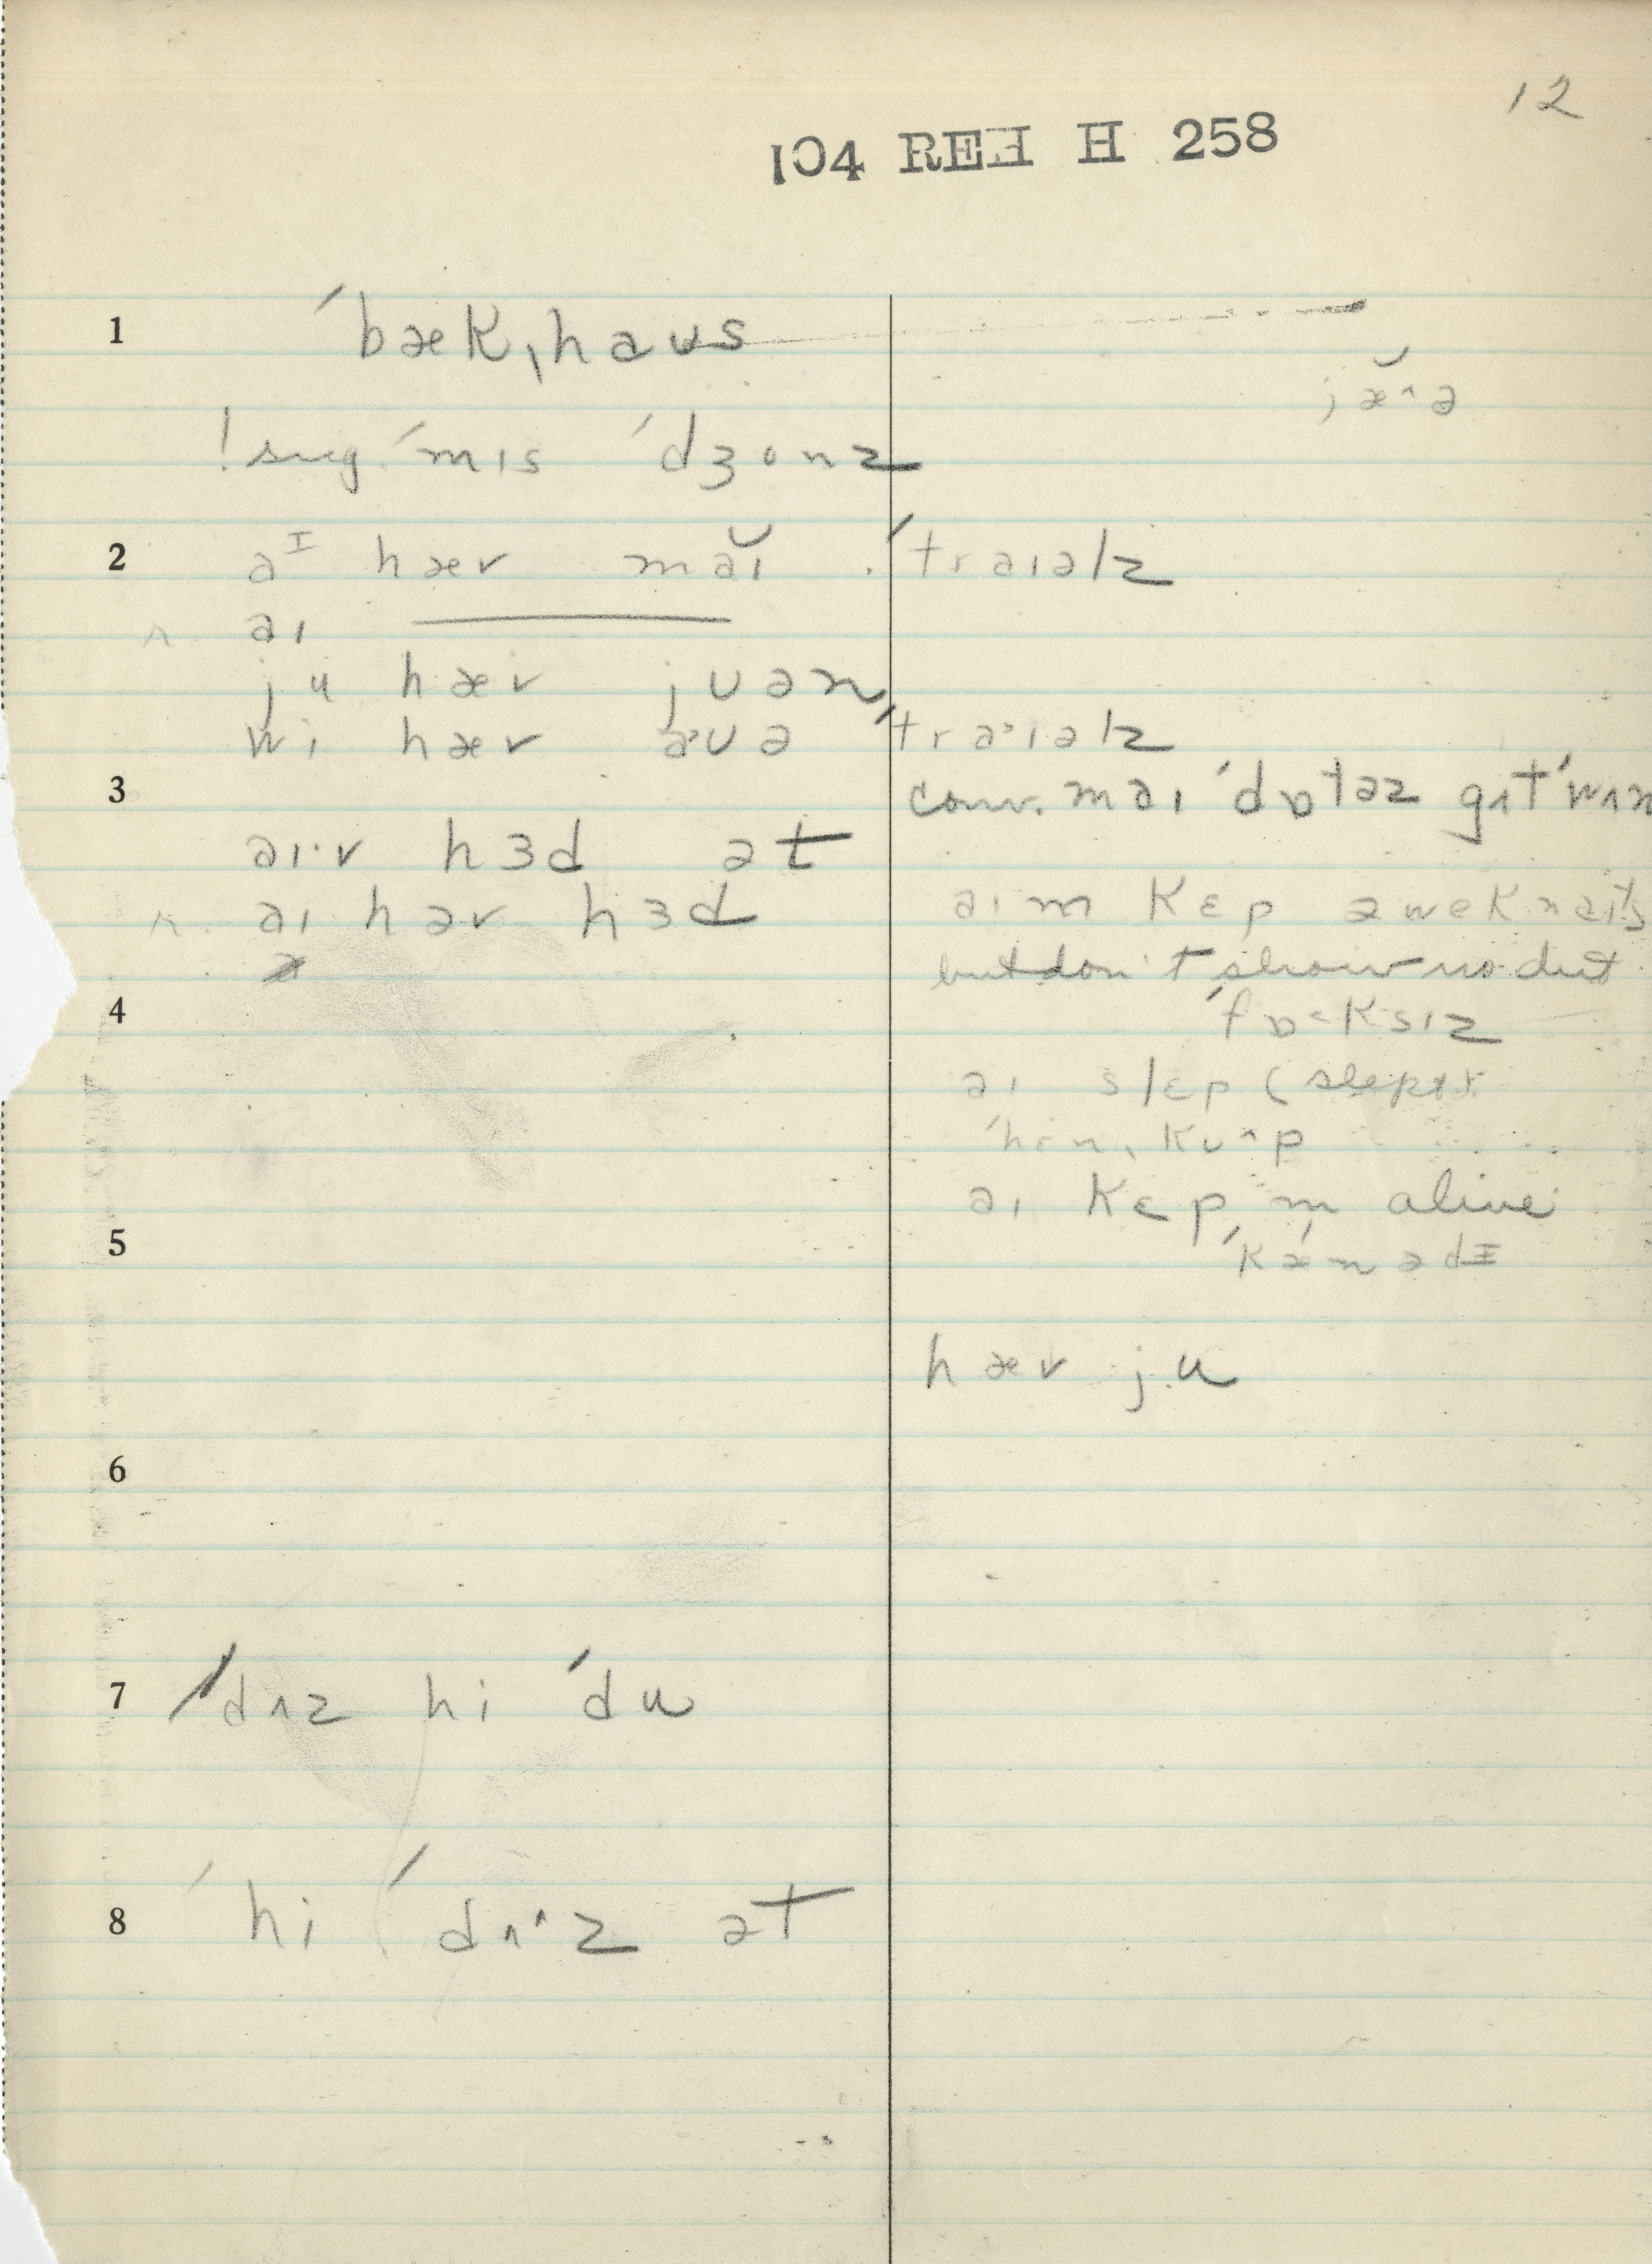 12
104 REF H 258
1 ˈbækˌhaʊs
jæ̆^ə
! sug. ˈmɪs ˈdʒonz
2 aᴵ hæv măɪ ˈtraɪəlz
r. aɪ ———
ju hæv jʊən
wi hæv aʊə ˈtraˑɪəlz
3 conv. maɪ ˈdɒtəz gɪt ˈwʌn
aɪˑv hɜd ət
r. aɪ həv hɜd
aɪm kɛp əwek naɪts
but don't show no dut
4 ˈfɒ<ksɪz
aɪ slɛp (slept
ˈhɛnˌkuʌp
aɪ kɛp m alive
5 ˈkæˑnədɪ
hæv ju
6
7 ˈdʌz hi ˈdu
8 ˈhi ˈdʌˑz ət